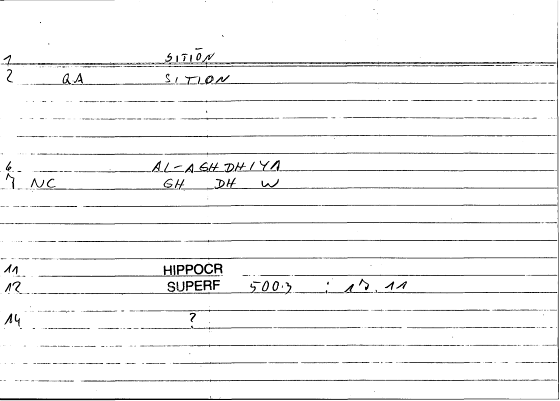 1 SITIŌN
2 QA SITION
6 AL-AGHDHIYA
7 NC GH DH W
11 HIPPOCR
12 SUPERF 500.3 : 17.11
14 ?